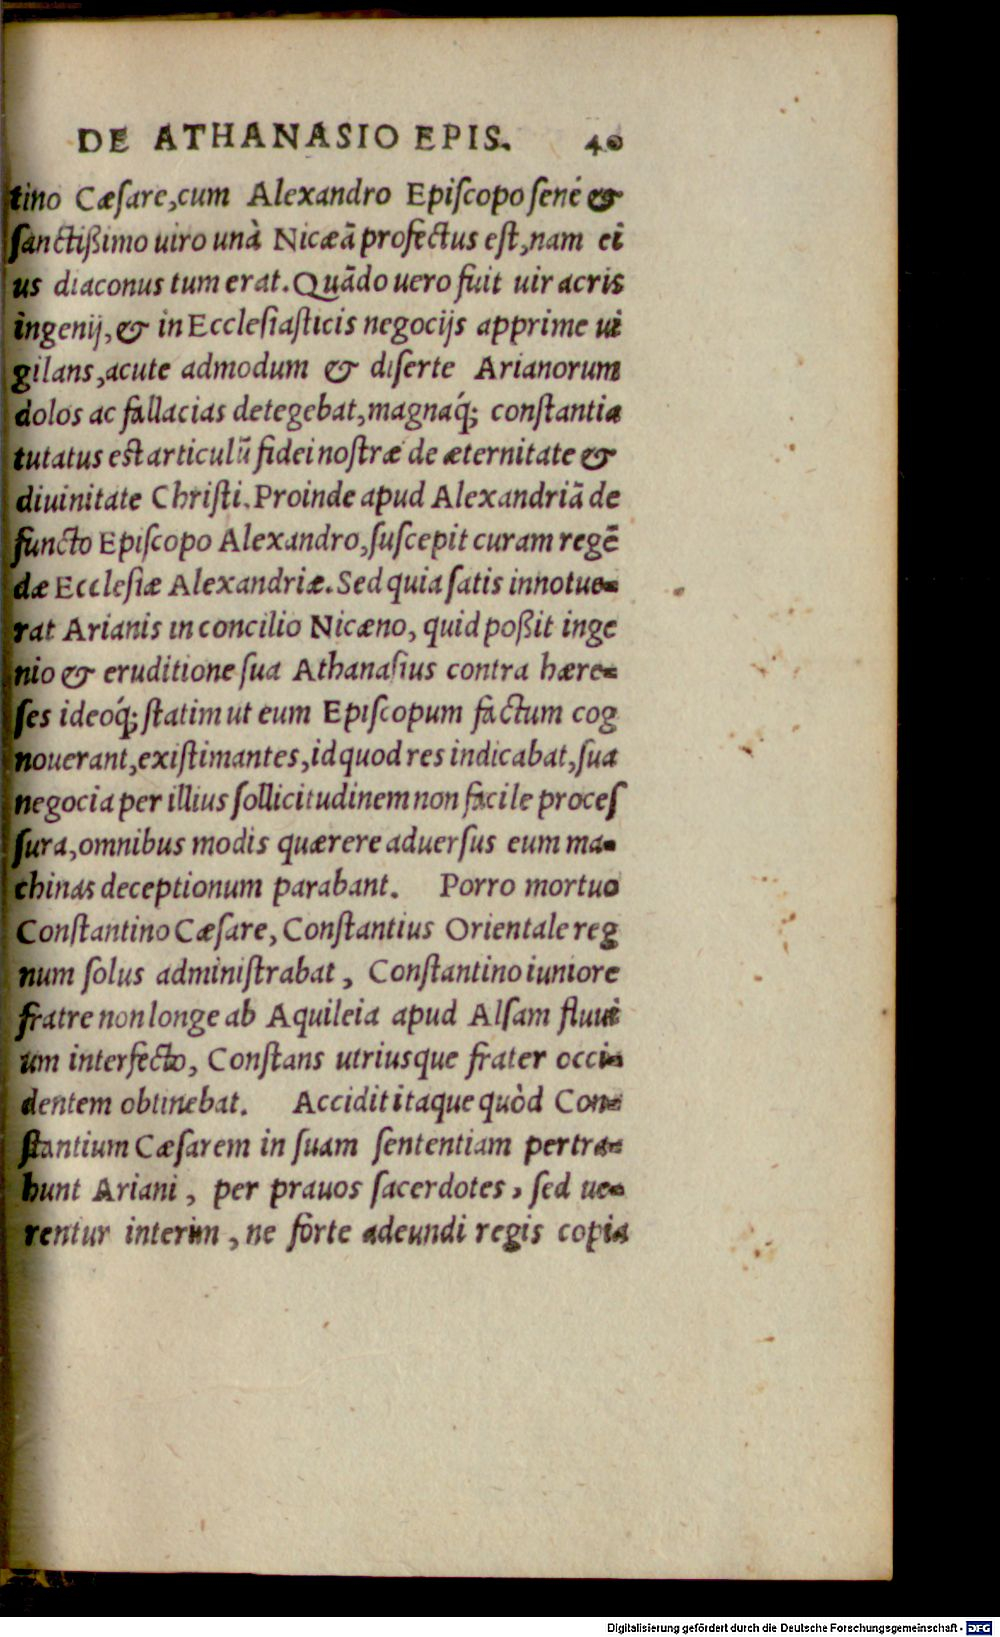 DE ATHANASIO EPIS. 40
tino Cæſare,cum Alexandro Epiſcopo ſene &
ſanctißimo uiro unà Nicæā profectus eſt,nam ei
us diaconus tum erat. Quādo uero fuit uir acris
ingenij, & in Eccleſiaſticis negocijs apprime ui
gilans,acute admodum & diſerte Arianorum
dolos ac fallacias detegebat,magnaq́; conſtantia
tutatus eſt articulū fidei noſtræ de æternitate &
diuinitate Chriſti. Proinde apud Alexandriā de
functo Epiſcopo Alexandro,ſuſcepit curam regē
dæ Eccleſiæ Alexandriæ. Sed quia ſatis innotue-
rat Arianis in concilio Nicæno, quid poßit inge
nio & eruditione ſua Athanaſius contra hære-
ſes ideoq́; ſtatim ut eum Epiſcopum factum cog
nouerant,exiſtimantes,id quod res indicabat,ſua
negocia per illius ſollicitudinem non facile proceſ
ſura,omnibus modis quærere aduerſus eum ma-
chinas deceptionum parabant. Porro mortuo
Conſtantino Cæſare, Conſtantius Orientale reg
num ſolus adminiſtrabat, Conſtantino iuniore
fratre non longe ab Aquileia apud Alſam fluui
um interfecto, Conſtans utriusque frater occi-
dentem obtinebat. Accidit itaque quòd Con-
ſtantium Cæſarem in ſuam ſententiam pertra-
hunt Ariani, per prauos ſacerdotes, ſed ue-
rentur interim, ne forte adeundi regis copia
Digitalisierung gefördert durch die Deutsche Forschungsgemeinschaft - DFG